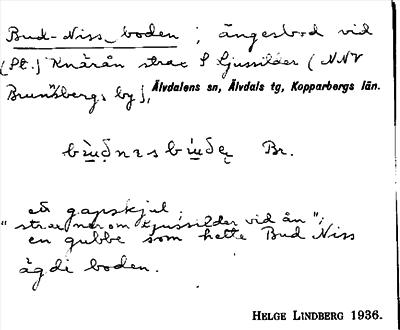 Bud-Niss boden ; ängesbod vid
(St.) Knärån strax S Ljussilder ( NNV
Brunnsbergs by), Älvdalens sn, Älvdals tg, Kopparbergs län.
Br.
ett gapskjul,
"strax norr om Ljussilder vid ån";
en gubbe som hette Bud Niss
ägde boden.
HELGE LINDBERG 1936.